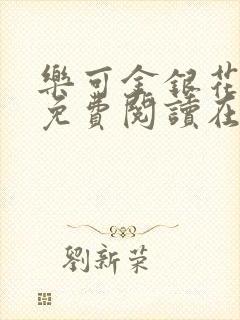 樂可金銀花
免費閱讀在
劉新荣